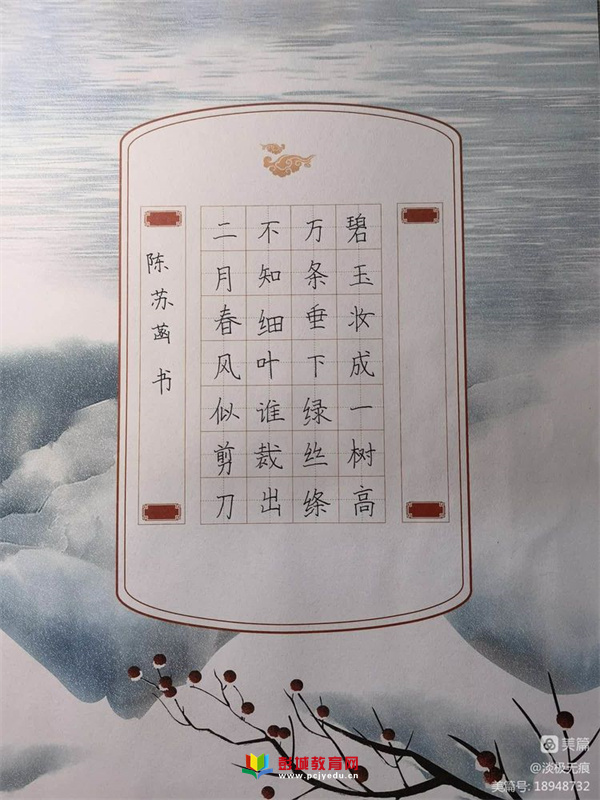 碧玉妆成一树高
万条垂下绿丝绦
不知细叶谁裁出
二月春风似剪刀
陈苏菡 书
彭城教育网
www.pcjyedu.cn
美篇
@淡极无痕
美篇号: 18948732